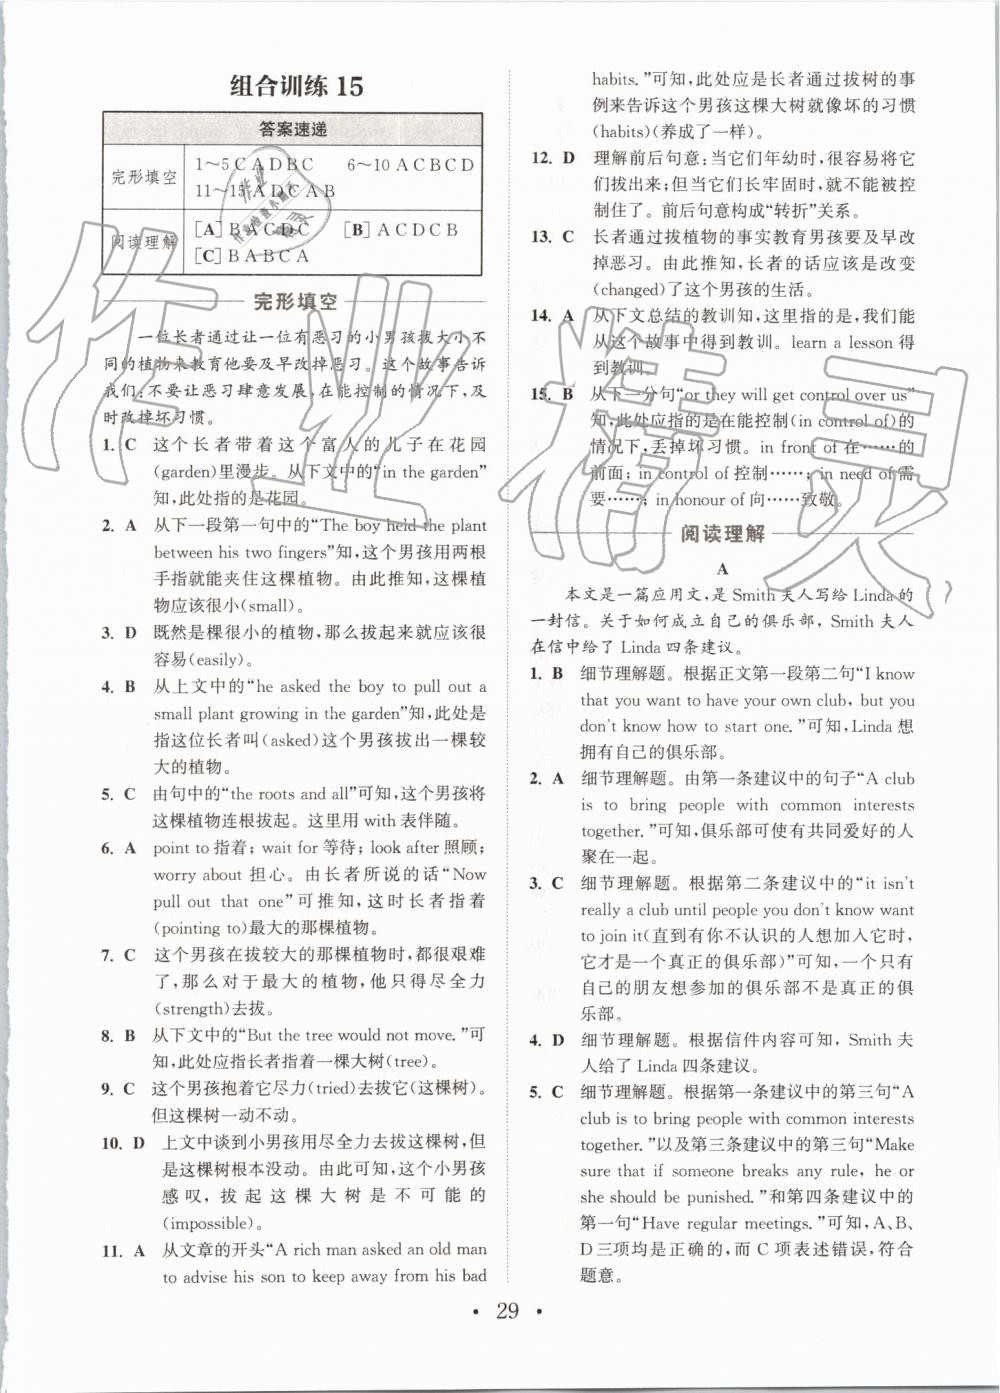 组合训练 15
答案速递
完形填空
1～5 C A D B C 6～10 A C B C D
11～15 A D C A B
阅读理解
[A] B A C D C [B] A C D C B
[C] B A B C A
完形填空
一位长者通过让一位有恶习的小男孩拔大小不
同的植物来教育他要及早改掉恶习。这个故事告诉
我们：不要让恶习肆意发展，在能控制的情况下，及
时改掉坏习惯。
1. C 这个长者带着这个富人的儿子在花园
(garden)里漫步。从下文中的“in the garden”
知，此处指的是花园。
2. A 从下一段第一句中的“The boy held the plant
between his two fingers”知，这个男孩用两根
手指就能夹住这棵植物。由此推知，这棵植
物应该很小(small)。
3. D 既然是棵很小的植物，那么拔起来就应该很
容易(easily)。
4. B 从上文中的“he asked the boy to pull out a
small plant growing in the garden”知，此处是
指这位长者叫(asked)这个男孩拔出一棵较
大的植物。
5. C 由句中的“the roots and all”可知，这个男孩将
这棵植物连根拔起。这里用 with 表伴随。
6. A point to 指着；wait for 等待；look after 照顾；
worry about 担心。由长者所说的话“Now
pull out that one”可推知，这时长者指着
(pointing to)最大的那棵植物。
7. C 这个男孩在拔较大的那棵植物时，都很艰难
了，那么对于最大的植物，他只得尽全力
(strength)去拔。
8. B 从下文中的“But the tree would not move.”可
知，此处应指长者指着一棵大树(tree)。
9. C 这个男孩抱着它尽力(tried)去拔它(这棵树)。
但这棵树一动不动。
10. D 上文中谈到小男孩用尽全力去拔这棵树，但
是这棵树根本没动。由此可知，这个小男孩
感叹，拔起这棵大树是不可能的
(impossible)。
11. A 从文章的开头“A rich man asked an old man
to advise his son to keep away from his bad
habits.”可知，此处应是长者通过拔树的事
例来告诉这个男孩这棵大树就像坏的习惯
(habits)(养成了一样)。
12. D 理解前后句意：当它们年幼时，很容易将它
们拔出来；但当它们长牢固时，就不能被控
制住了。前后句意构成“转折”关系。
13. C 长者通过拔植物的事实教育男孩要及早改
掉恶习。由此推知，长者的话应该是改变
(changed)了这个男孩的生活。
14. A 从下文总结的教训知，这里指的是，我们能
从这个故事中得到教训。learn a lesson 得
到教训。
15. B 从下一分句“or they will get control over us”
知，此处应指的是在能控制(in control of)的
情况下，丢掉坏习惯。in front of 在……的
前面；in control of 控制……；in need of 需
要……；in honour of 向……致敬。
阅读理解
A
本文是一篇应用文，是 Smith 夫人写给 Linda 的
一封信。关于如何成立自己的俱乐部，Smith 夫人
在信中给了 Linda 四条建议。
1. B 细节理解题。根据正文第一段第二句“I know
that you want to have your own club, but you
don't know how to start one.”可知，Linda 想
拥有自己的俱乐部。
2. A 细节理解题。由第一条建议中的句子“A club
is to bring people with common interests
together.”可知，俱乐部可使有共同爱好的人
聚在一起。
3. C 细节理解题。根据第二条建议中的“it isn't
really a club until people you don't know want
to join it(直到有你不认识的人想加入它时，
它才是一个真正的俱乐部)”可知，一个只有
自己的朋友想参加的俱乐部不是真正的俱
乐部。
4. D 细节理解题。根据信件内容可知，Smith 夫
人给了 Linda 四条建议。
5. C 细节理解题。根据第一条建议中的第三句“A
club is to bring people with common interests
together.”以及第三条建议中的第三句“Make
sure that if someone breaks any rule, he or
she should be punished.”和第四条建议中的
第一句“Have regular meetings.”可知，A、B、
D 三项均是正确的，而 C 项表述错误，符合
题意。
· 29 ·
作业精灵